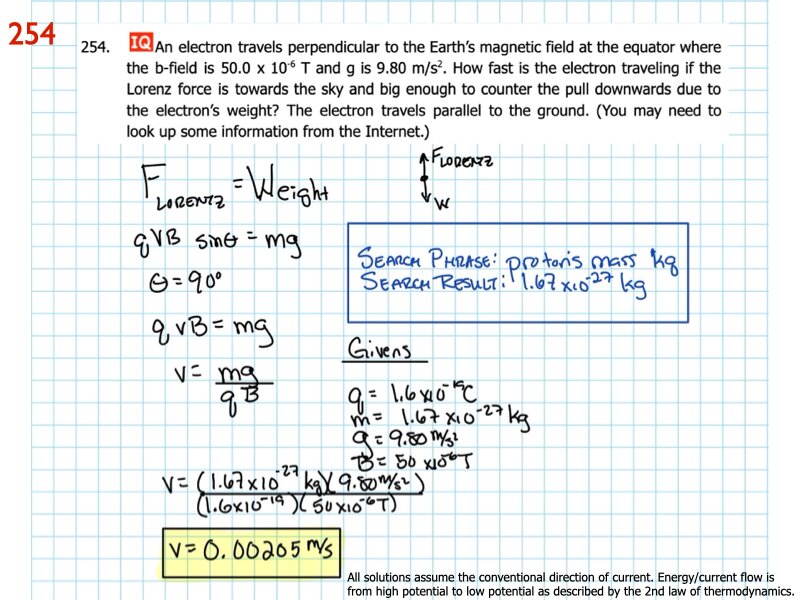 254
254. IQ An electron travels perpendicular to the Earth's magnetic field at the equator where
the b-field is 50.0 x 10⁻⁶ T and g is 9.80 m/s². How fast is the electron traveling if the
Lorenz force is towards the sky and big enough to counter the pull downwards due to
the electron's weight? The electron travels parallel to the ground. (You may need to
look up some information from the Internet.)
F LORENTZ = Weight
FLORENTZ
W
qVB sinθ = mg
SEARCH PHRASE: proton's mass kg
SEARCH RESULT: 1.67 x10⁻²⁷ kg
θ = 90°
qvB = mg
Givens
v = mg
qB
q = 1.6 x10⁻¹⁹C
m = 1.67 x10⁻²⁷ kg
g = 9.80 m/s²
B = 50 x10⁻⁶T
v = (1.67x10⁻²⁷ kg)(9.80m/s²)
(1.6x10⁻¹⁹)(50x10⁻⁶T)
v = 0.00205 m/s
All solutions assume the conventional direction of current. Energy/current flow is
from high potential to low potential as described by the 2nd law of thermodynamics.